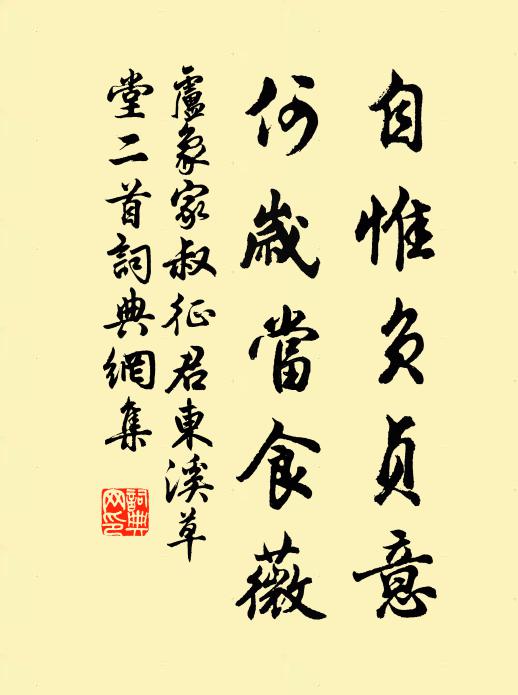 自惟负贞意
何歲當食薇
盧象家叔征君東溪草
堂二首詞典網集
詞典
网印